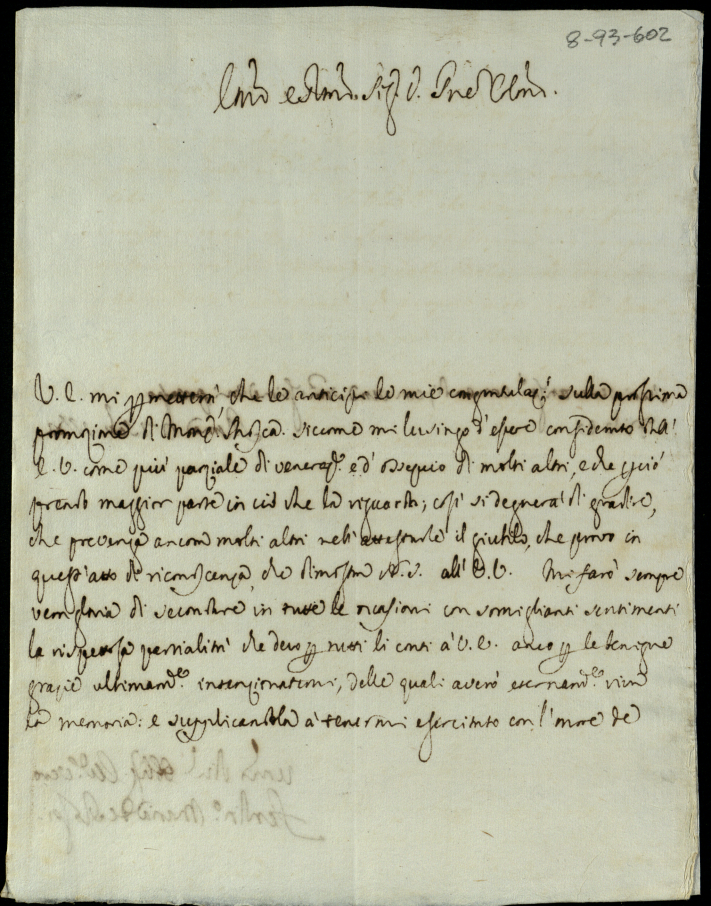 8-93-602
V. E. mi permetterà, che le anticipi le mie congratulaz.i sulla prossima
promozione di Mons.r siccome mi lusingo d'essere considerato dall'
E. V. come più parziale di veneraz.e e d'ossequio di molti altri, e che perciò
prendo maggior parte in ciò che la riguarda; così si degnerà di gradire,
che prevenga ancora molti altri nell'attestarle il giubilo, che provo in
quest'atto di riconoscenza, che dimostra N. S. all'E. V. Mi farò sempre
vera gloria di secondare in tutte le occasioni con somiglianti sentimenti
la rispettosa parzialità che devo per tutti li conti à V. E. anco per le benigne
grazie ultimam.te delle quali averò eternam.te viva
la memoria: e supplicandola à tenermi esercitato con l'onore de